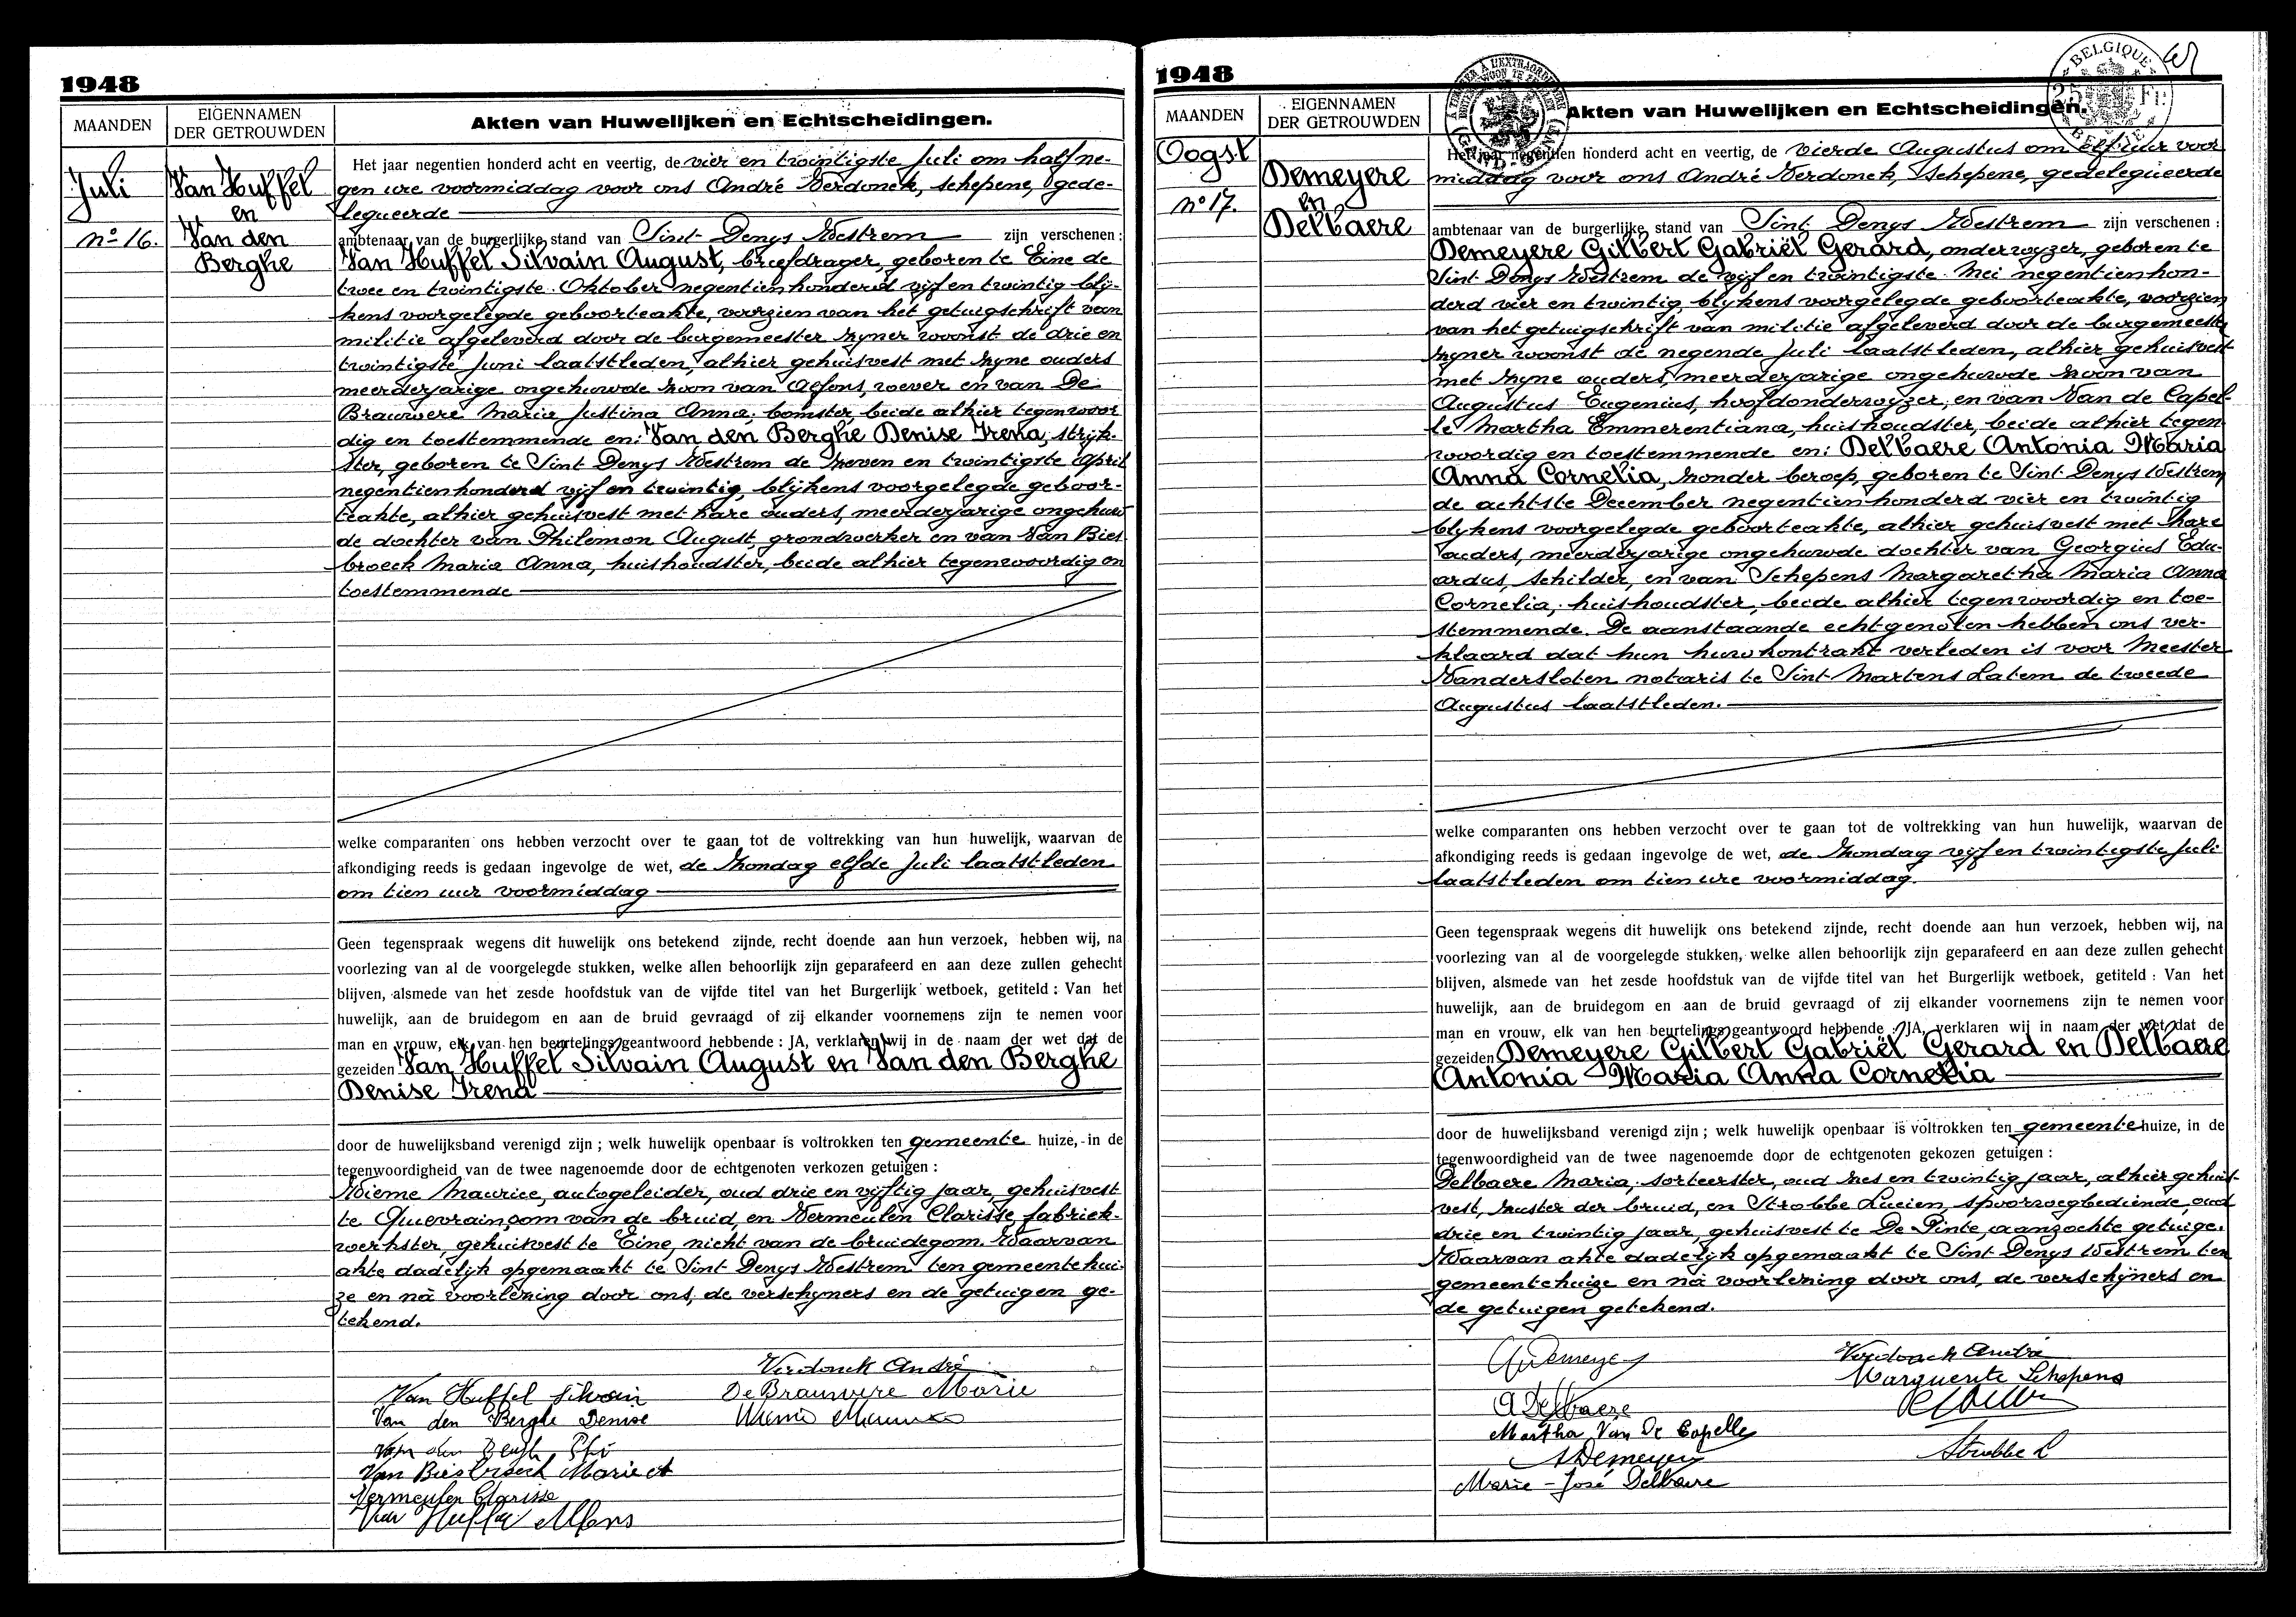 1948
MAANDEN
EIGENNAMEN
DER GETROUWDEN
Akten van Huwelijken en Echtscheidingen.
Juli
nº 16.
Van Huffel
en
Van den
Berghe
Het jaar negentien honderd acht en veertig, de vier en twintigste Juli om half ne-
gen ure voormiddag voor ons André Verdonck, schepene, gede-
legueerde
ambtenaar van de burgerlijke stand van Sint Denys Westrem zijn verschenen:
Van Huffel Silvain August, briefdrager, geboren te Eine de
twee en twintigste Oktober negentienhonderd vijf en twintig blij-
kens voorgelegde geboorteakte, voorzien van het getuigschrift van
militie afgeleverd door de burgemeester zyner woonst de drie en
twintigste Juni laatstleden, alhier gehuisvest met zyne ouders
meerderjarige ongehuwde zoon van Alfons, wever en van De
Brauwere Maria Justina Anna, bomster, beide alhier tegenwoor
dig en toestemmende en: Van den Berghe Denise Irena, strijk-
ster, geboren te Sint Denys Westrem de zeven en twintigste April
negentienhonderd vijf en twintig, blijkens voorgelegde geboor-
teakte, alhier gehuisvest met hare ouders, meerderjarige ongehuw
de dochter van Philemon August, grondwerker en van Van Bies
broeck Maria Anna, huishoudster, beide alhier tegenwoordig en
toestemmende
welke comparanten ons hebben verzocht over te gaan tot de voltrekking van hun huwelijk, waarvan de
afkondiging reeds is gedaan ingevolge de wet, de Zondag elfde Juli laatstleden
om tien uur voormiddag
Geen tegenspraak wegens dit huwelijk ons betekend zijnde, recht doende aan hun verzoek, hebben wij, na
voorlezing van al de voorgelegde stukken, welke allen behoorlijk zijn geparafeerd en aan deze zullen gehecht
blijven, alsmede van het zesde hoofdstuk van de vijfde titel van het Burgerlijk wetboek, getiteld : Van het
huwelijk, aan de bruidegom en aan de bruid gevraagd of zij elkander voornemens zijn te nemen voor
man en vrouw, elk van hen beurtelings geantwoord hebbende : JA, verklaren wij in de naam der wet dat de
gezeiden Van Huffel Silvain August en Van den Berghe
Denise Irena
door de huwelijksband verenigd zijn ; welk huwelijk openbaar is voltrokken ten gemeente huize, in de
tegenwoordigheid van de twee nagenoemde door de echtgenoten verkozen getuigen :
Wieme Maurice, autogeleider, oud drie en vijftig jaar, gehuisvest
te Quievrain, oom van de bruid, en Vermeulen Clarisse, fabriek-
werkster, gehuisvest te Eine, nicht van de bruidegom. Waarvan
akte dadelijk opgemaakt te Sint Denys Westrem ten gemeentehui-
ze en na voorlezing door ons, de verschyners en de getuigen ge-
tekend.
Verdonck André
Van Huffel Silvain
De Brauwere Marie
Van den Berghe Denise
Van Biesbroeck Marie A
Vermeulen Clarisse
Van Huffel Alfons
1948
BELGIQUE
25 Fr
BELGIË
MAANDEN
EIGENNAMEN
DER GETROUWDEN
Akten van Huwelijken en Echtscheidingen.
Oogst
nº 17.
Demeyere
en
Delbaere
Het jaar negentien honderd acht en veertig, de vierde Augustus om elf uur voor
middag voor ons André Verdonck, schepene, gedelegueerde
ambtenaar van de burgerlijke stand van Sint Denys Westrem zijn verschenen :
Demeyere Gilbert Gabriël Gerard, onderwyzer, geboren te
Sint Denys Westrem de vijf en twintigste Mei negentienhon-
derd vier en twintig, blykens voorgelegde geboorteakte, voorzien
van het getuigschrift van militie afgeleverd door de burgemeester
zyner woonst de negende Juli laatstleden, alhier gehuisvest
met zyne ouders, meerderjarige ongehuwde zoon van
Augustus Eugenius, hoofdonderwyzer, en van Van de Capel-
le Martha Emmerentiana, huishoudster, beide alhier tegen
woordig en toestemmende en: Delbaere Antonia Maria
Anna Cornelia, zonder beroep, geboren te Sint Denys Westrem
de achtste December negentienhonderd vier en twintig
blykens voorgelegde geboorteakte, alhier gehuisvest met hare
ouders, meerderjarige ongehuwde dochter van Georgius Edu-
ardus, schilder, en van Schepens Margaretha Maria Anna
Cornelia, huishoudster, beide alhier tegenwoordig en toe-
stemmende. De aanstaande echtgenoten hebben ons ver-
klaard dat hun huwkontrakt verleden is voor Meester
Vandersloten notaris te Sint Martens Latem de tweede
Augustus laatstleden.
welke comparanten ons hebben verzocht over te gaan tot de voltrekking van hun huwelijk, waarvan de
afkondiging reeds is gedaan ingevolge de wet, de Zondag vijf en twintigste Juli
laatstleden om tien ure voormiddag.
Geen tegenspraak wegens dit huwelijk ons betekend zijnde, recht doende aan hun verzoek, hebben wij, na
voorlezing van al de voorgelegde stukken, welke allen behoorlijk zijn geparafeerd en aan deze zullen gehecht
blijven, alsmede van het zesde hoofdstuk van de vijfde titel van het Burgerlijk wetboek, getiteld : Van het
huwelijk, aan de bruidegom en aan de bruid gevraagd of zij elkander voornemens zijn te nemen voor
man en vrouw, elk van hen beurtelings geantwoord hebbende : JA, verklaren wij in naam der wet dat de
gezeiden Demeyere Gilbert Gabriël Gerard en Delbaere
Antonia Maria Anna Cornelia
door de huwelijksband verenigd zijn ; welk huwelijk openbaar is voltrokken ten gemeente huize, in de
tegenwoordigheid van de twee nagenoemde door de echtgenoten gekozen getuigen :
Delbaere Maria, sorteerster, oud zes en twintig jaar, alhier gehuis-
vest, zuster der bruid, en Strobbe Lucien, spoorwegbediende, oud
drie en twintig jaar, gehuisvest te De Pinte, aanzochte getuige.
Waarvan akte dadelijk opgemaakt te Sint Denys Westrem ten
gemeentehuize en na voorlezing door ons, de verschijners en
de getuigen getekend.
Verdonck André
Marguerite Schepens
A Delbaere
Martha Van De Capelle
ADemeyere
Strobbe L
Marie-José Delbaere